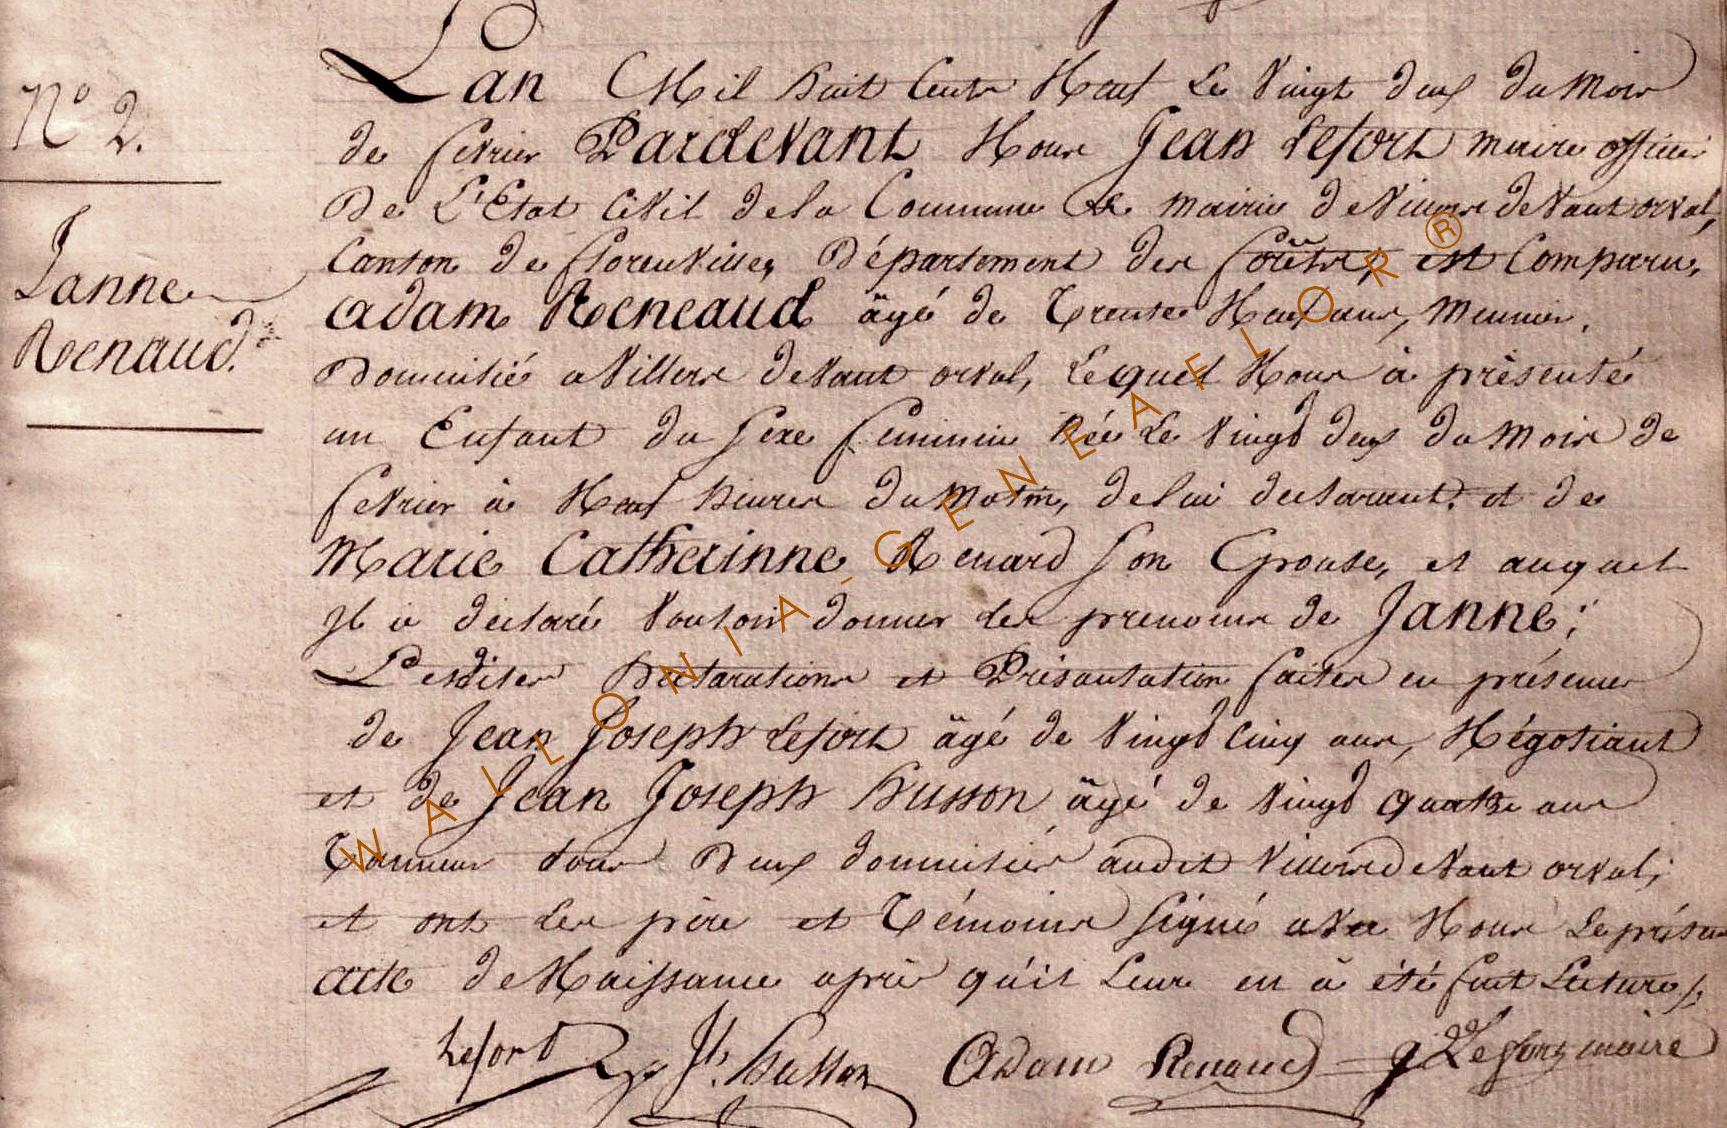 N° 2.
Janne
Renaud.
Lan Mil huit Cents Neuf Le Vingt deux du Mois
de fevrier Pardevant Nous Jean Lefort maire officier
De L'Etat Civil de la Commune & mairie de Villers devant orval,
Canton de florenville, Département des foréts, est Comparu,
Adam Reneaud âgé de Trente Neuf ans, Meunier,
Domicilié a Villers devant orval, Lequel Nous à présenté
un Enfant du Sexe feminin Née Le Vingt deux du Mois de
fevrier à Neuf heures du Matin, de lui declarant, et de
Marie Catherinne Renard Son Epouse, et auquel
Jl a declaré Vouloir donner les prenoms de Janne;
Lesdites Declarations et Présantation faites en présence
de Jean Joseph Lefort âgé de Vingt Cinq ans, Négotiant
et de Jean Joseph Husson âgé de Vingt quatre ans
Tanneur tous Deux domiciliés audit Villers devant orval;
et ont les père et Témoins Signé avec Nous Le présent
acte de Naissance après qu'il Leur en à été fait Lecture,
Lefort Jh. Husson Adam Renaud J Lefort maire
WALLONIA-GENEAFLOR®